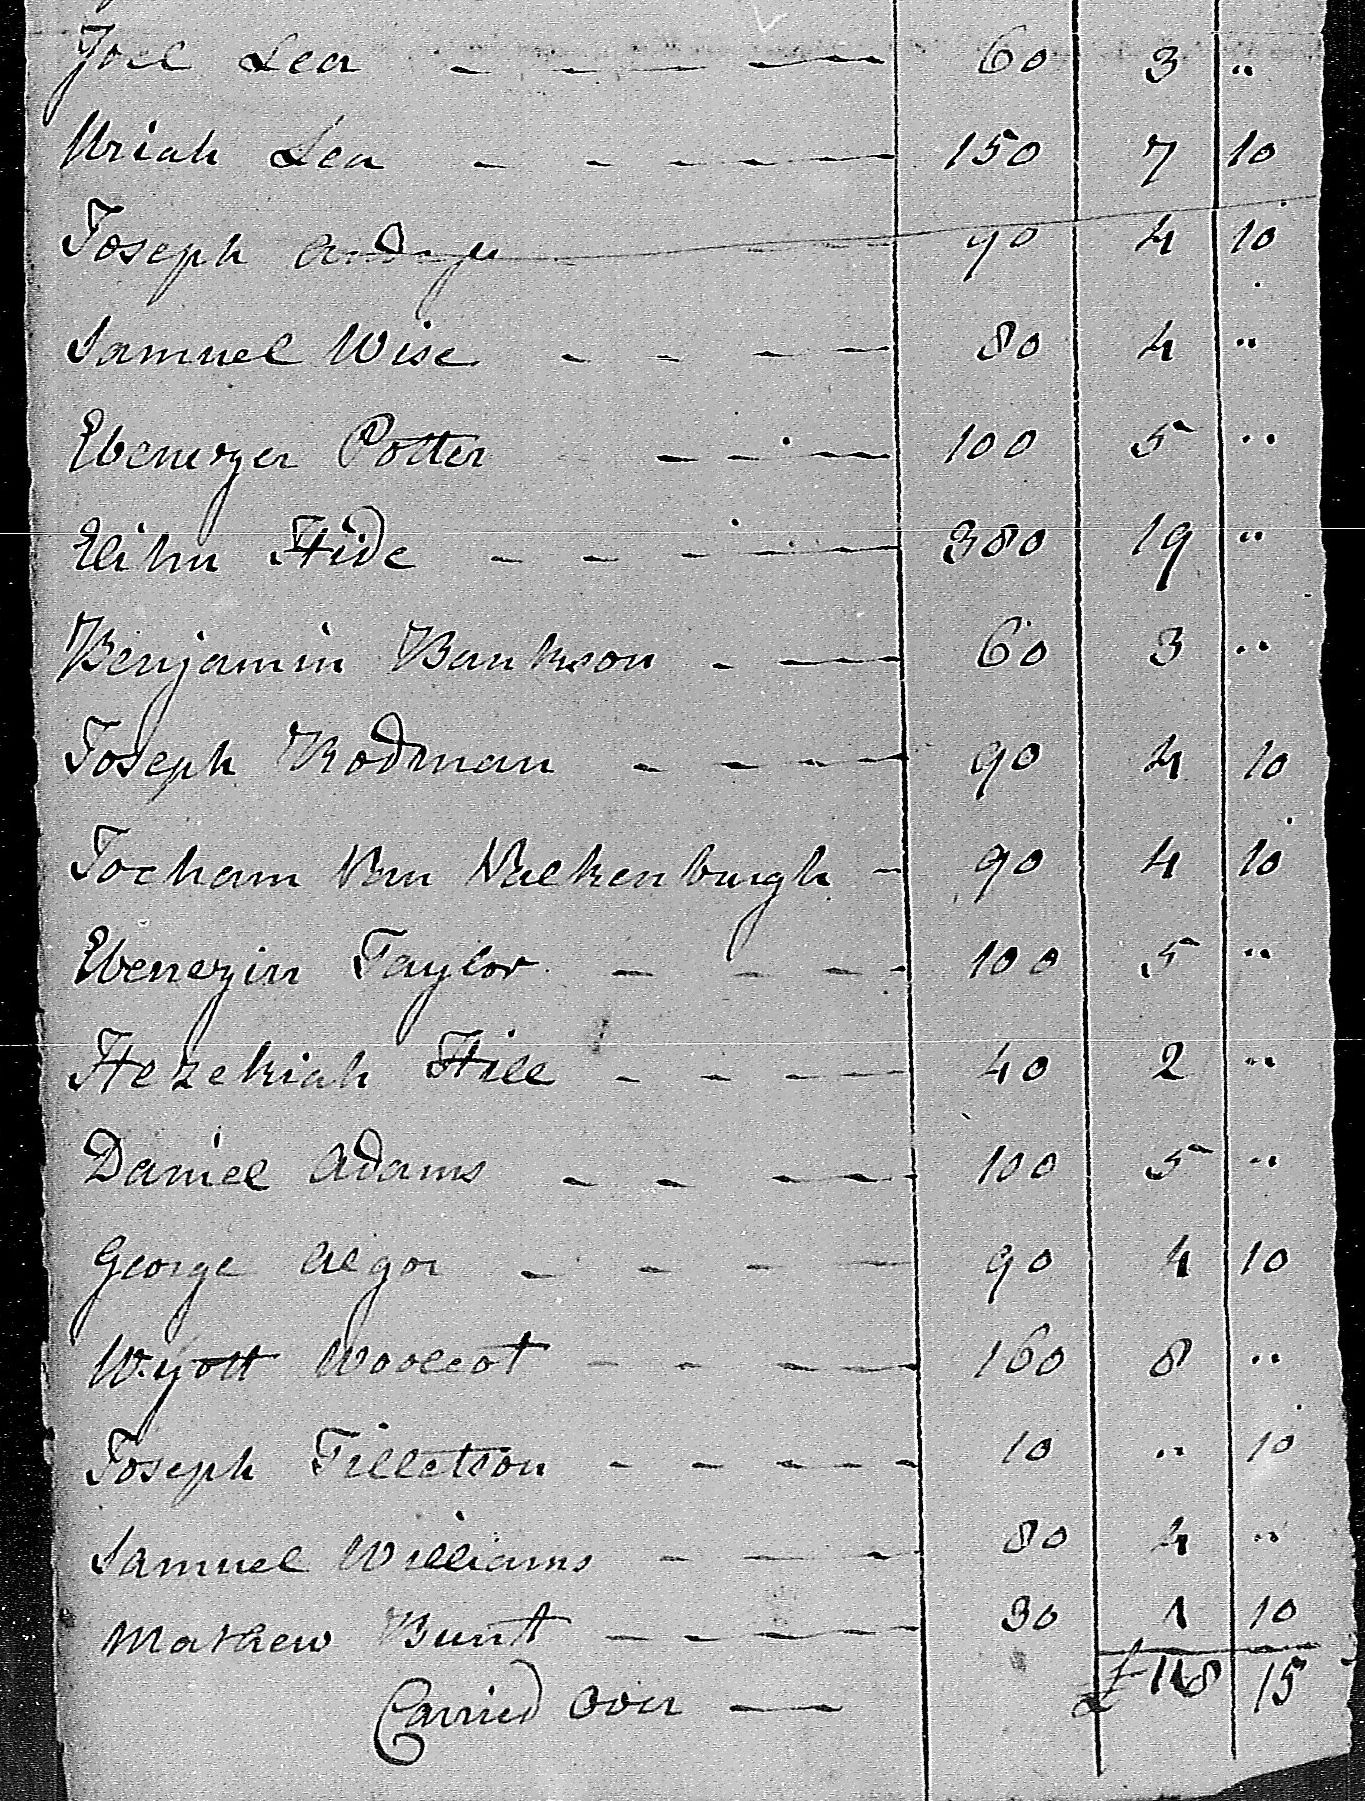 Joel Lea 60 3 "
Uriah Lea 150 7 10
Joseph 90 4 10
Samuel Wise 80 4 "
Ebenezer Potter 100 5 "
Elihu Hide 380 19 "
Benjamin Bankson 60 3 "
Joseph Rodman 90 4 10
Jocham Van Valkenburgh 90 4 10
Ebenezer Taylor 100 5 "
Hezekiah Hill 40 2 "
Daniel Adams 100 5 "
George Algor 90 4 10
Wyott Woolcot 160 8 "
Joseph Tilletson 10 " 10
Samuel Williams 80 4 "
Mathew Bunt 30 1 10
Carried Over £ 15